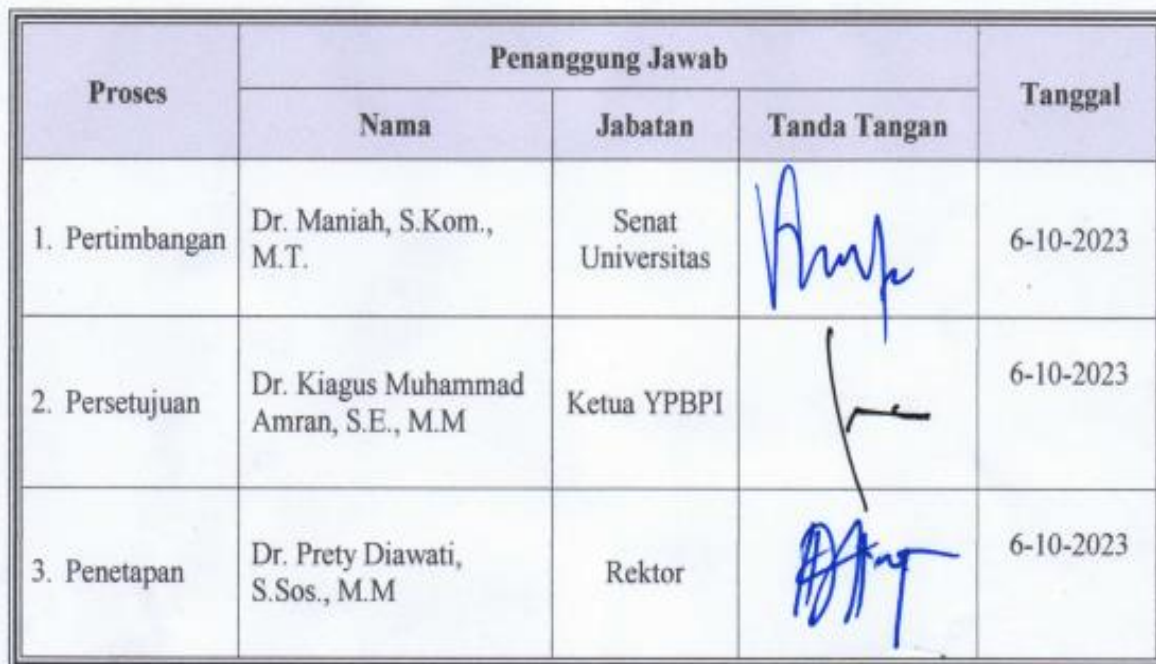 Proses
Penanggung Jawab
Tanggal
Nama
Jabatan
Tanda Tangan
1. Pertimbangan
Dr. Maniah, S.Kom.,
M.T.
Senat
Universitas
6-10-2023
2. Persetujuan
Dr. Kiagus Muhammad
Amran, S.E., M.M
Ketua YPBPI
6-10-2023
3. Penetapan
Dr. Prety Diawati,
S.Sos., M.M
Rektor
6-10-2023